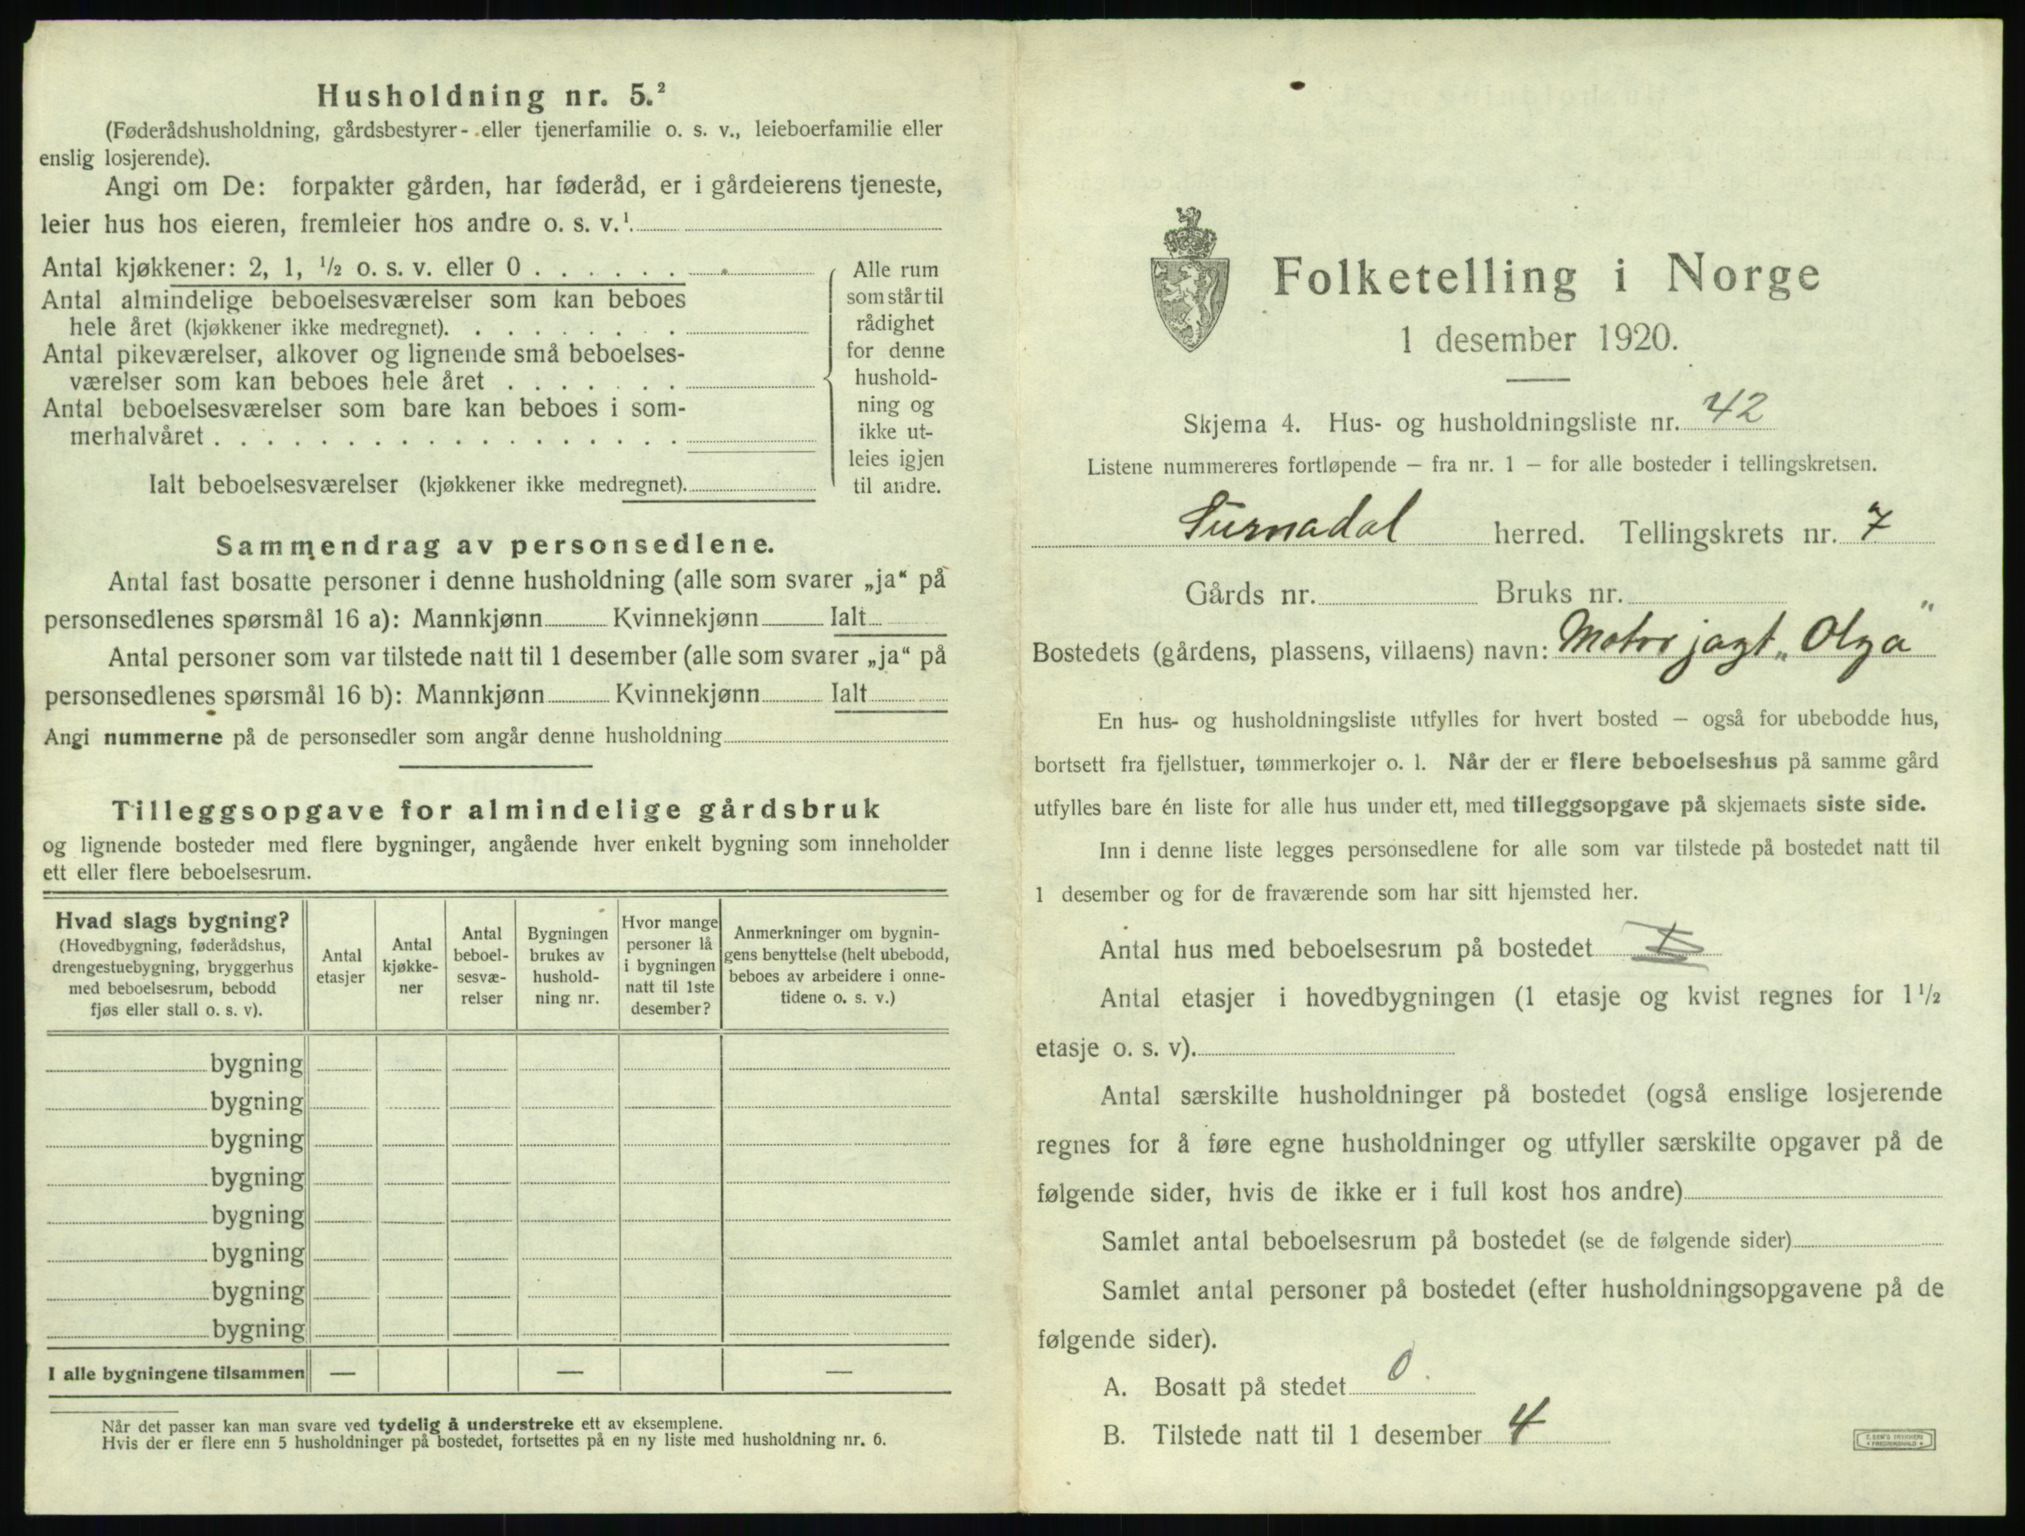 Husholdning nr. 5.²
(Føderådshusholdning, gårdsbestyrer- eller tjenerfamilie o. s. v., leieboerfamilie eller
enslig losjerende).
Angi om De: forpakter gården, har føderåd, er i gårdeierens tjeneste,
leier hus hos eieren, fremleier hos andre o. s. v.¹
Antal kjøkkener: 2, 1, ½ o. s. v. eller 0 . . . . . .
Antal almindelige beboelsesværelser som kan beboes
hele året (kjøkkener ikke medregnet). . . . . . . . .
Antal pikeværelser, alkover og lignende små beboelses-
værelser som kan beboes hele året . . . . . . .
Antal beboelsesværelser som bare kan beboes i som-
merhalvåret . . . . . . . . . . . . . . . . . .
Ialt beboelsesværelser (kjøkkener ikke medregnet).
Alle rum
som står til
rådighet
for denne
hushold-
ning og
ikke ut-
leies igjen
til andre.
Sammendrag av personsedlene.
Antal fast bosatte personer i denne husholdning (alle som svarer „ja“ på
personsedlenes spørsmål 16 a): Mannkjønn Kvinnekjønn Ialt
Antal personer som var tilstede natt til 1 desember (alle som svarer „ja“ på
personsedlenes spørsmål 16 b): Mannkjønn Kvinnekjønn Ialt
Angi nummerne på de personsedler som angår denne husholdning
Tilleggsopgave for almindelige gårdsbruk
og lignende bosteder med flere bygninger, angående hver enkelt bygning som inneholder
ett eller flere beboelsesrum.
Hvad slags bygning?
(Hovedbygning, føderådshus,
drengestuebygning, bryggerhus
med beboelsesrum, bebodd
fjøs eller stall o. s. v).
Antal
etasjer
Antal
kjøkke-
ner
Antal
beboel-
sesvæ-
relser
Bygningen
brukes av
hushold-
ning nr.
Hvor mange
personer lå
i bygningen
natt til 1ste
desember?
Anmerkninger om bygnin-
gens benyttelse (helt ubebodd,
beboes av arbeidere i onne-
tidene o. s. v.)
bygning
bygning
bygning
bygning
bygning
bygning
bygning
bygning
I alle bygningene tilsammen — — —
Når det passer kan man svare ved tydelig å understreke ett av eksemplene.
Hvis der er flere enn 5 husholdninger på bostedet, fortsettes på en ny liste med husholdning nr. 6.
Folketelling i Norge
1 desember 1920.
Skjema 4. Hus- og husholdningsliste nr. 42
Listene nummereres fortløpende – fra nr. 1 – for alle bosteder i tellingskretsen.
Surnadal herred. Tellingskrets nr. 7
Gårds nr. Bruks nr.
Bostedets (gårdens, plassens, villaens) navn: Motorjagt „Olga“
En hus- og husholdningsliste utfylles for hvert bosted – også for ubebodde hus,
bortsett fra fjellstuer, tømmerkojer o. l. Når der er flere beboelseshus på samme gård
utfylles bare én liste for alle hus under ett, med tilleggsopgave på skjemaets siste side.
Inn i denne liste legges personsedlene for alle som var tilstede på bostedet natt til
1 desember og for de fraværende som har sitt hjemsted her.
Antal hus med beboelsesrum på bostedet
Antal etasjer i hovedbygningen (1 etasje og kvist regnes for 1½
etasje o. s. v).
Antal særskilte husholdninger på bostedet (også enslige losjerende
regnes for å føre egne husholdninger og utfyller særskilte opgaver på de
følgende sider, hvis de ikke er i full kost hos andre)
Samlet antal beboelsesrum på bostedet (se de følgende sider)
Samlet antal personer på bostedet (efter husholdningsopgavene på de
følgende sider).
A. Bosatt på stedet 0
B. Tilstede natt til 1 desember 4